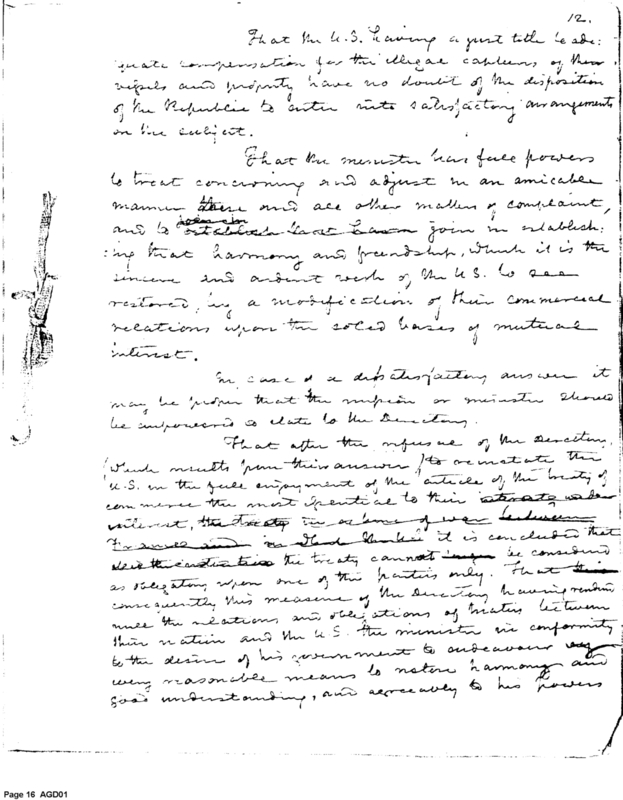 12.
That the U.S. having a just title to ade:
quate compensation for the illegal captures of their
vessels and property have no doubt of the disposition
of the Republic to enter into satisfactory arrangements
on the subject.
That the minister has full powers
to treat concerning and adjust in an amicable
manner these and all other matters of complaint,
and to join in establish:
:ing that harmony and friendship, which it is the
sincere and ardent wish of the U.S. to see
restored, by a modification of their commercial
relations upon the solid bases of mutual
interest.
In case of a dissatisfactory answer it
may be proper that the mission or minister should
be empowered to state to the Directory.
That after the refusal of the Directory,
(which results from their answer) to reinstate the
U.S. in the full enjoyment of the article of the treaty of
commerce the most essential to their
interest, it is concluded that
the treaty cannot be considered
as obligatory upon one of the parties only. That
consequently this measure of the Directory having rendered
null the relations and obligations of treaties between
their nation and the U.S. the minister in conformity
to the desire of his government to endeavour
every reasonable means to restore harmony and
good understanding, and agreeably to his powers
Page 16 AGD01